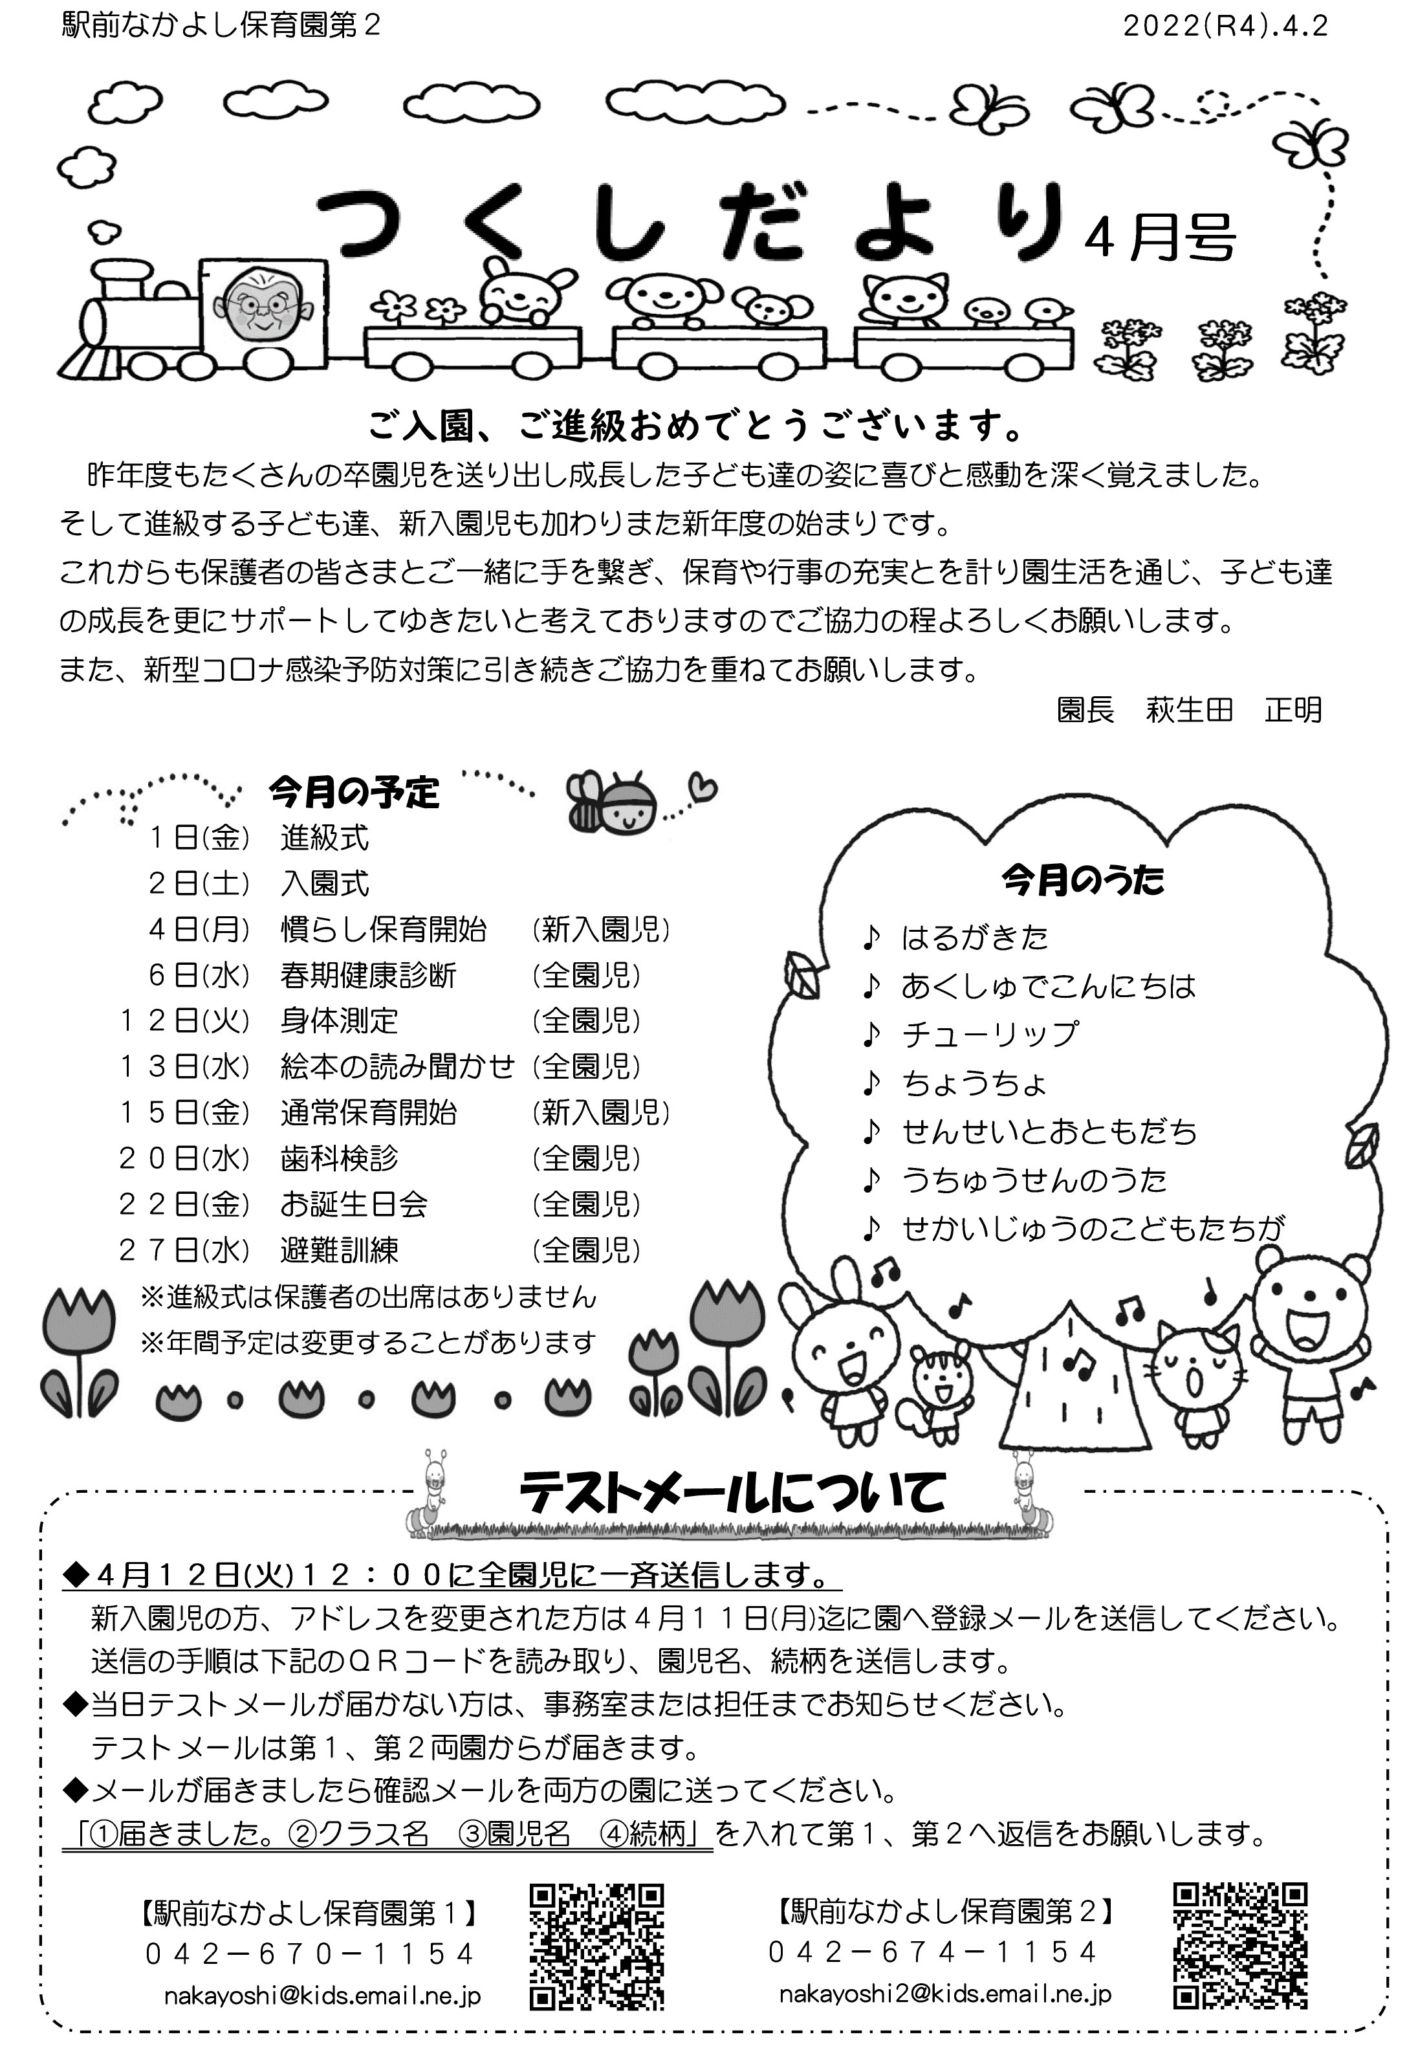 駅前なかよし保育園第２
2022(R4).4.2
つくしだより４月号
ご入園、ご進級おめでとうございます。
　昨年度もたくさんの卒園児を送り出し成長した子ども達の姿に喜びと感動を深く覚えました。
そして進級する子ども達、新入園児も加わりまた新年度の始まりです。
これからも保護者の皆さまとご一緒に手を繋ぎ、保育や行事の充実とを計り園生活を通じ、子ども達
の成長を更にサポートしてゆきたいと考えておりますのでご協力の程よろしくお願いします。
また、新型コロナ感染予防対策に引き続きご協力を重ねてお願いします。
園長　萩生田　正明
今月の予定
１日(金)　進級式
２日(土)　入園式
４日(月)　慣らし保育開始　(新入園児)
６日(水)　春期健康診断　(全園児)
１２日(火)　身体測定　(全園児)
１３日(水)　絵本の読み聞かせ　(全園児)
１５日(金)　通常保育開始　(新入園児)
２０日(水)　歯科検診　(全園児)
２２日(金)　お誕生日会　(全園児)
２７日(水)　避難訓練　(全園児)
※進級式は保護者の出席はありません
※年間予定は変更することがあります
今月のうた
♪ はるがきた
♪ あくしゅでこんにちは
♪ チューリップ
♪ ちょうちょ
♪ せんせいとおともだち
♪ うちゅうせんのうた
♪ せかいじゅうのこどもたちが
テストメールについて
◆４月１２日(火)１２：００に全園児に一斉送信します。
新入園児の方、アドレスを変更された方は４月１１日(月)迄に園へ登録メールを送信してください。
送信の手順は下記のＱＲコードを読み取り、園児名、続柄を送信します。
◆当日テストメールが届かない方は、事務室または担任までお知らせください。
テストメールは第１、第２両園からが届きます。
◆メールが届きましたら確認メールを両方の園に送ってください。
「①届きました。②クラス名　③園児名　④続柄」を入れて第１、第２へ返信をお願いします。
【駅前なかよし保育園第１】
０４２－６７０－１１５４
nakayoshi@kids.email.ne.jp
【駅前なかよし保育園第２】
０４２－６７４－１１５４
nakayoshi2@kids.email.ne.jp